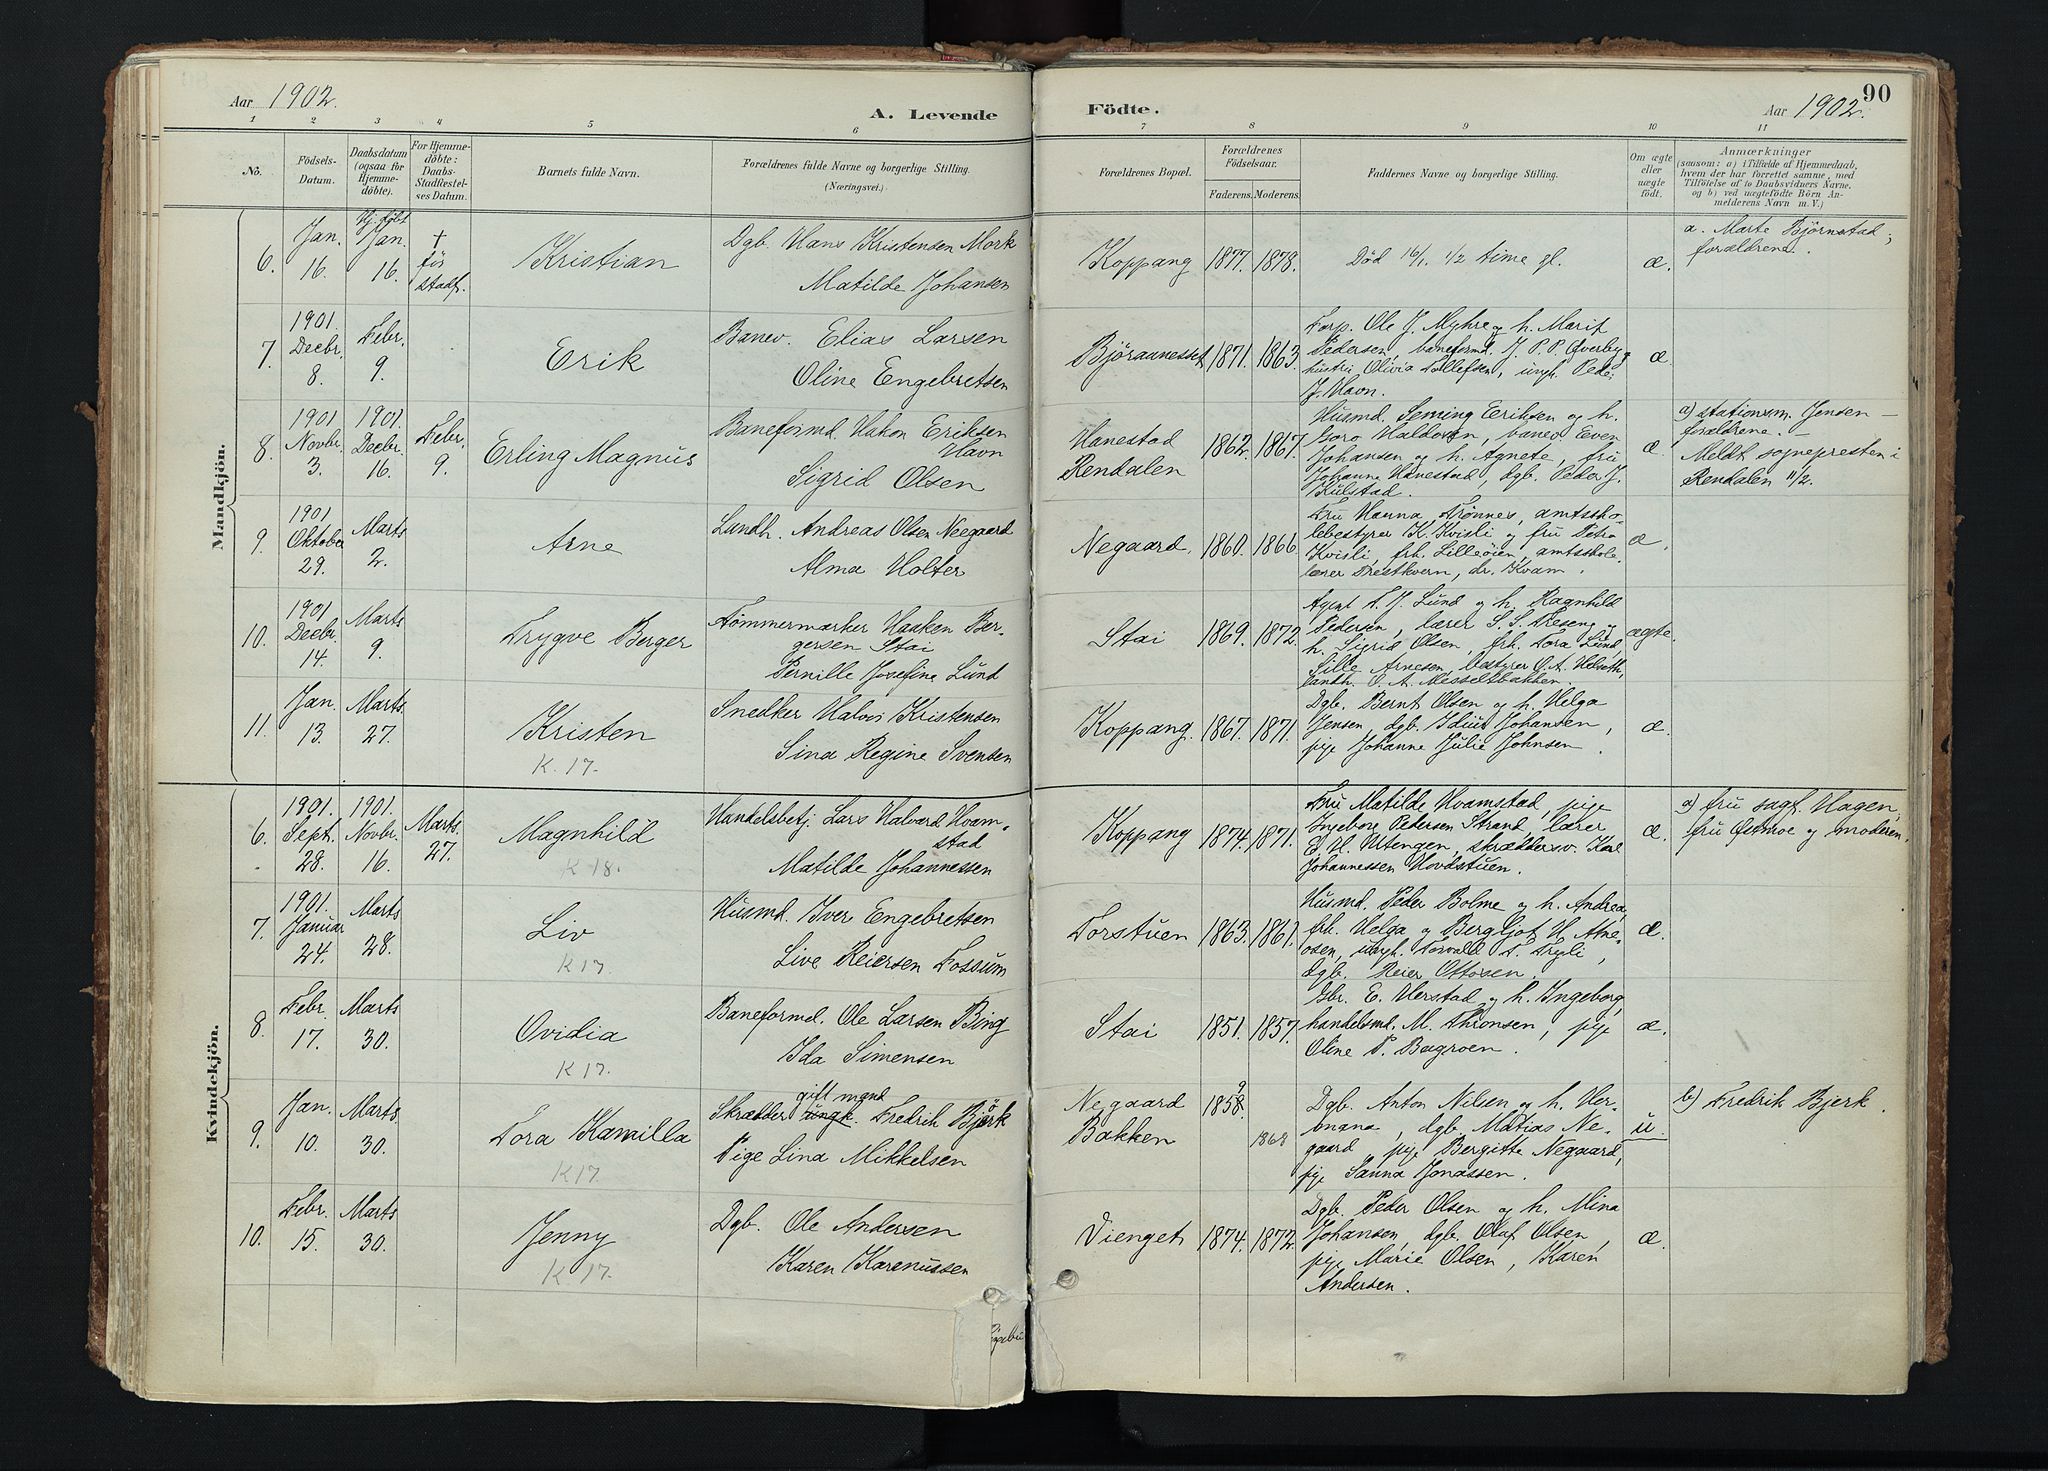 Aar 1902.
A. Levende
Födte.
Aar 1902.
90
1 2 3 4 5 6 7 8 9 10 11
No.
Födsels-
Datum.
Daabsdatum
(ogsaa for
Hjemme-
döbte).
For Hjemme-
döbte:
Daabs-
Stadfæstel-
ses Datum.
Barnets fulde Navn.
Forældrenes fulde Navne og borgerlige Stilling.
(Næringsvei.)
Forældrenes Bopæl.
Forældrenes
Födselsaar.
Faderens. Moderens.
Faddernes Navne og borgerlige Stilling.
Om ægte
eller
uægte
födt.
Anmærkninger
(saasom: a) i Tilfælde af Hjemmedaab,
hvem der har forrettet samme, med
Tilföielse af to Daabsvidners Navne,
og b) ved uægtefödte Börn An-
melderens Navn m. V.)
Mandkjön.
6.
Jan.
16.
Hj. døbt
Jan.
16.
†
før
stadf.
Kristian
Dgb. Hans Kristensen Mork
Matilde Johansen
Koppang
1877. 1878.
Død 16/1. 1/2 time gl.
æ.
a. Marte Bjørnstad;
forældrene.
7.
1901.
Decbr.
8.
Febr.
9.
Erik
Banev. Elias Larsen
Oline Engebretsen
Bjøraanesset
1871. 1863.
Forp. Ole J. Myhre og h. Marit
Pedersen, baneformd. J. P. P. Øverby,
hustru Olivia Tollefsen, ungk. Peder
J. Havn.
æ.
8.
1901
Novbr.
3.
1901.
Decbr.
16.
Febr.
9.
Erling Magnus
Baneformd. Hakon Eriksen
Havn
Sigrid Olsen
Hanestad
Rendalen
1862. 1867.
Husmd. Seming Eriksen og h.
Goro Haldorsen, banev. Even
Johansen og h. Agnete, fru
Johanne Hanestad, dgb. Peder J.
Kulstad.
æ.
a) stationsm. Jensen –
forældrene. –
Meldt sognepresten i
Rendalen 11/2.
9.
1901
Oktober
29.
Marts
2.
Arne
Landh. Andreas Olsen Neegaard
Alma Holter
Negaard.
1860. 1866.
Fru Hanna Trønnes, amtssko-
lebestyrer K. Kvisli og fru Petra
Kvisli, frk. Lilleøien, amtsskole-
lærer Trestkvern, dr. Kvam.
æ.
10.
1901
Decbr.
14.
Marts
9.
Trygve Berger
Tømmermærker Haaken Ber-
gersen Stai
Pernille Josefine Lund
Stai
1869. 1872.
Agent T. J. Lund og h. Ragnhild
Pedersen, lærer S. S. Treseng og
h. Sigrid Olsen, frk. Tora Lund,
Sille Arnesen, bestyrer O. A.
landh. O. A. Messeltbakken.
ægte.
11.
Jan.
13.
Marts.
27.
Kristen
K. 17.
Snedker Halvor Kristensen
Sina Regine Svensen
Koppang.
1867. 1871.
Dgb. Bernt Olsen og h. Helga
Jensen, dgb. Johansen,
pige Johanne Julie Johnsen.
æ.
Kvindekjön.
6.
1901.
Sept.
28.
1901.
Novbr.
16.
Marts.
27.
Magnhild
K 18.
Handelsbetj. Lars Halvard Hvam-
stad
Matilde Johannessen
Koppang
1874. 1871.
Fru Matilde Hvamstad, pige
Ingeborg Pedersen Strand, lærer
E. H. Utengen, skræddersv. Karl
Johannessen Hovdstuen.
æ.
a) fru sagf. Hagen,
fru Østmoe og moderen.
7.
1901.
Januar
24.
Marts
28.
Liv
K 17.
Husmd. Iver Engebretsen
Live Reiersen Fossum
Forstuen
1863. 1867.
Husmd. Peder Bolme og h. Andrea,
frk. Helga og Bergljot H. Atne-
osen, ungk. Torvald T. Tryli,
dgb. Reier Ottosen.
æ.
8.
Febr.
17.
Marts
30.
Ovidia
K 17.
Baneformd. Ole Larsen Bing
Ida Simensen
Stai
1851. 1857.
Gbr. E. Herstad og h. Ingeborg,
handelsmd. M. Thronsen, pige
Oline P. Bagroen.
æ.
9.
Jan.
10.
Marts
30.
Tora Kamilla
K 17.
gift mand
Skrædder ungk. Fredrik Bjørk
Pige Lina Mikkelsen
Negaard
Bakken
1858.
9
1868
Dgb. Anton Nilsen og h. Her-
onana, dgb. Matias Ne-
gaard, pige Bergitte Negaard,
pige Sanna Jonassen.
u.
b) Fredrik Bjerk.
10.
Febr.
15.
Marts
30.
Jenny
K 17.
Dgb. Ole Andersen
Karen Karenussen
Vienget
1874. 1872.
Dgb. Peder Olsen og h. Mina
Johansen, dgb. Olaf Olsen,
pige Marie Olsen, Karen
Andersen.
æ.